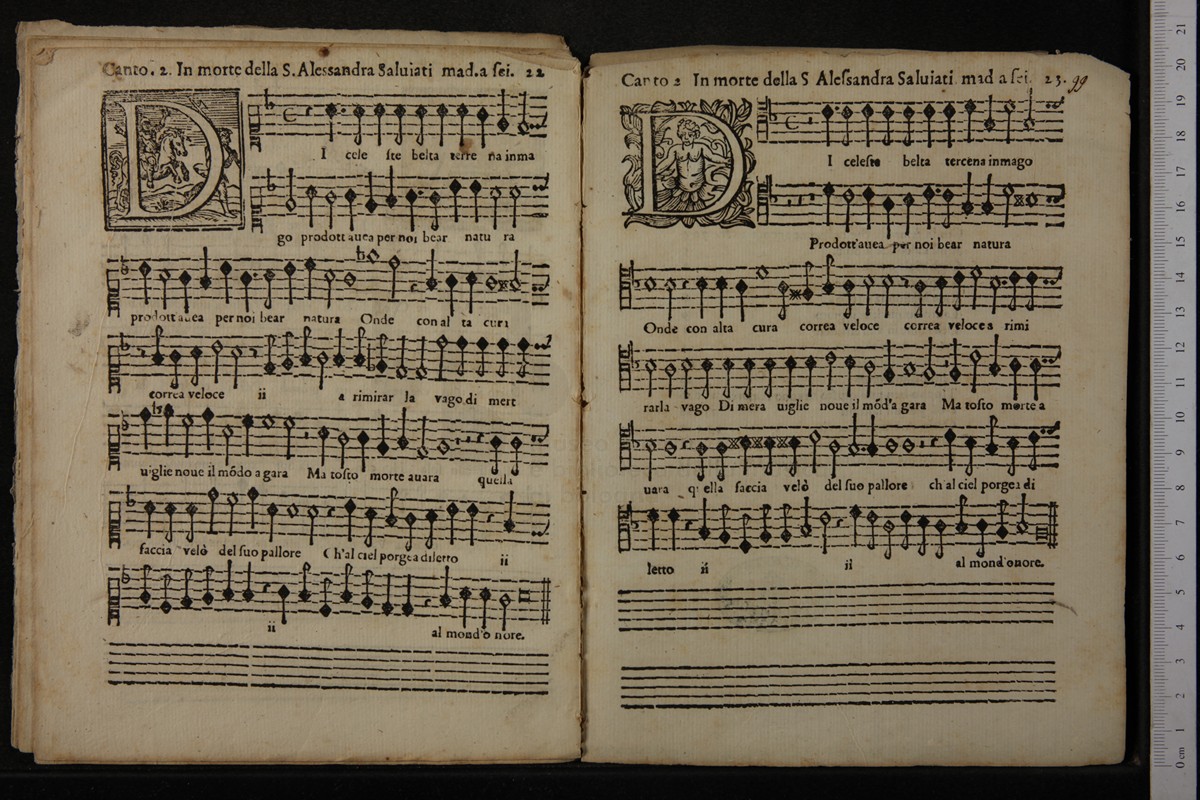 Canto. 2. In morte della S. Alessandra Saluiati mad. a sei. 22
D
I cele ste belta terre na inma
go prodott auea per noi bear natu ra
prodott auea per noi bear natura Onde con al ta cura
correa veloce ii a rimirar la vago di mert
uiglie noue il módo a gara Ma tosto morte avara quella
faccia velò del suo pallore Ch'al ciel porgea diletto ii
ii al mond'o nore.
Canto 2 In morte della S Alessandra Saluiati mad a sei. 23. 99
D
I celeste belta terrena inmago
Prodott'auea per noi bear natura
Onde con alta cura correa veloce correa veloce a rimi
rarla vago Di mera uiglie noue il mód'a gara Ma tosto morte a
uara q' ella faccia velò del suo pallore ch'al ciel porgea di
letto ii ii al mond'onore.
21
20
19
18
17
16
15
14
13
12
11
10
9
8
7
6
5
4
3
2
1
0 cm